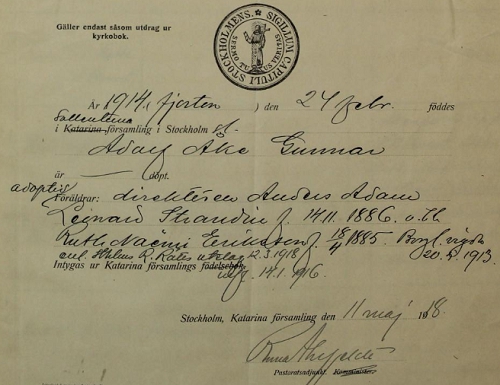 Gäller endast såsom utdrag ur
kyrkobok.
STOCKHOLMENS. SIGILLUM CAPITULI
SERMO TUUS VERITAS
År 1914, fjorton ) den 24 febr. föddes
i Katarina församling i Stockholm
Adolf Åke Gunnar
är — döpt.
adoptiv
Föräldrar: direktören Anders Adam
Leonard Strandin f. 14.11.1886. o. h.
Ruth Naëmi Eriksson f. 18/4 1885. Borgl. vigda
enl. R. Råtts utslag 12.3.1918 20.5.1913.
Intygas ur Katarina församlings födelsebok 14.1.1916.
Stockholm, Katarina församling den 11 maj 1918.
Pastoratsadjunkt. Komminister.